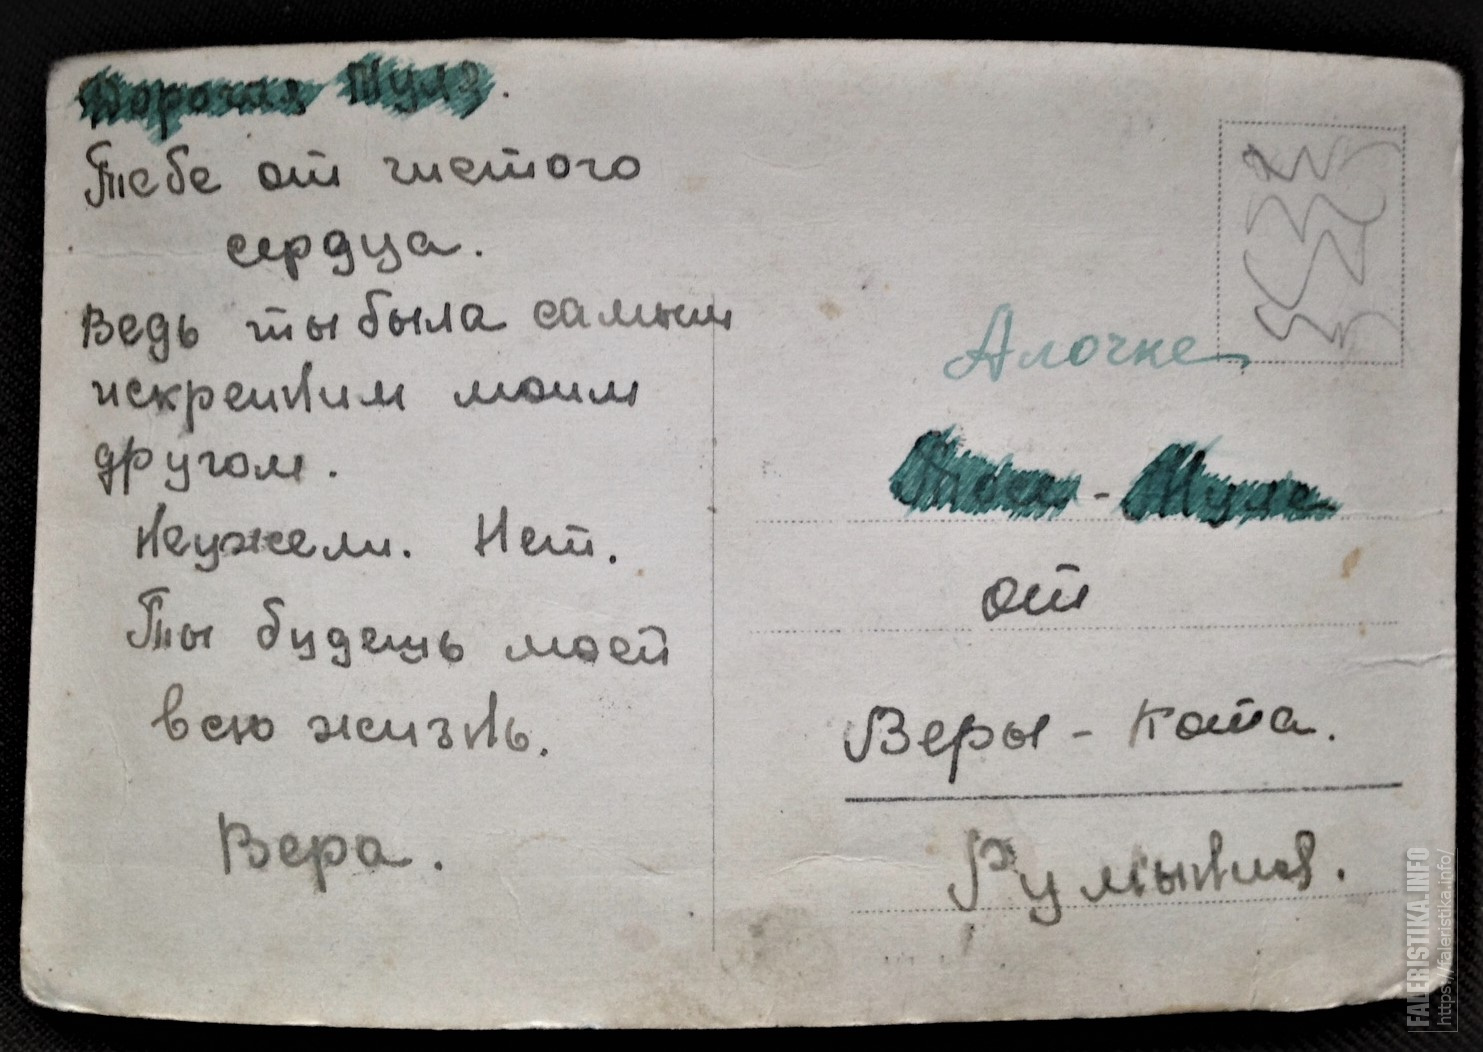 Дорогая Муля.
Тебе от чистого
сердца.
Ведь ты была самым
искренним моим
другом.
Неужели. Нет.
Ты будешь моей
всю жизнь.
Вера.
Алочке
- Муле
от
Веры - Кота.
Румыния.
FALERISTIKA.INFO
https://faleristika.info/